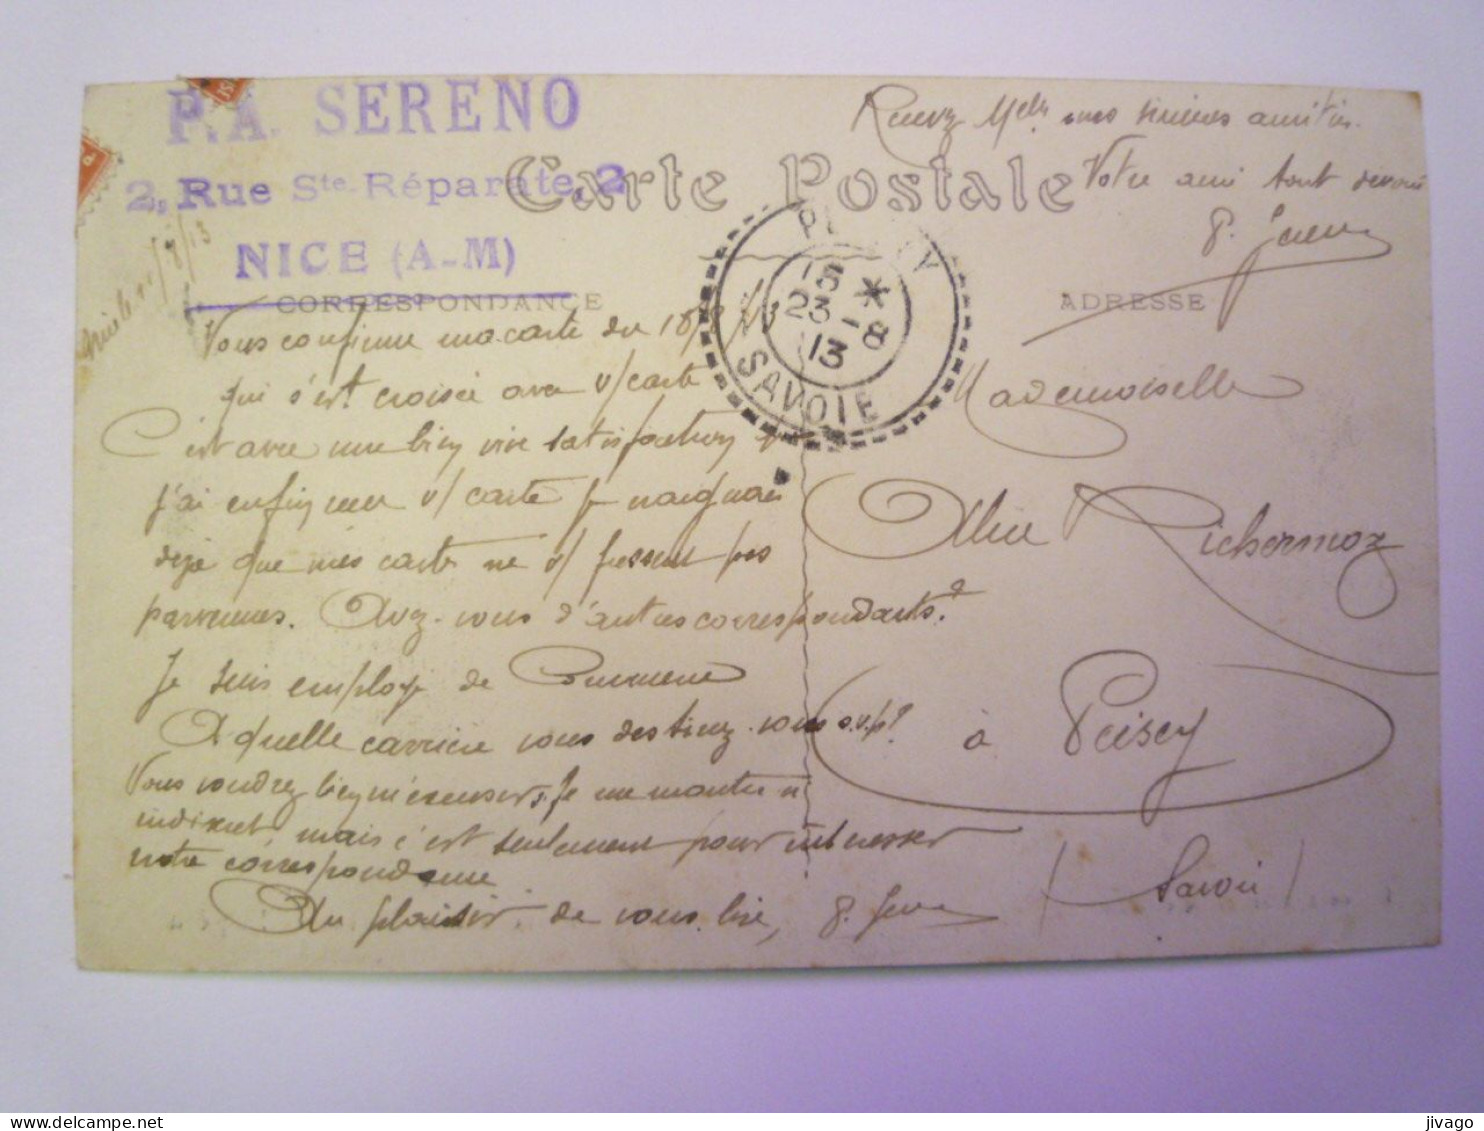 P.A. SERENO
2, Rue Ste-Réparate, 2
NICE (A-M)
Carte Postale
CORRESPONDANCE
ADRESSE
Recevez Melle mes amitiés.
Votre ami tout dévoué
P.
PEISEY
15 *
23 -8
13
SAVOIE
Vous confirme ma carte du 18/8/13
qui s'est croisée avec v/carte
C'est avec une bien vive satisfaction q
j'ai enfin reçu v/ carte je craignais
déjà que mes cartes ne v/ fussent pas
parvenues. Avez-vous d'autres correspondants?
Je suis employé de Commerce
A quelle carrière vous destinez-vous s.v.p?
Vous voudrez bien m'excuser, Je me montre si
indiscret, mais c'est seulement pour intéresser
notre correspondance
Au plaisir de vous lire, P.
Mademoiselle
Richermoz
à Peisey
(Savoie)
jivago